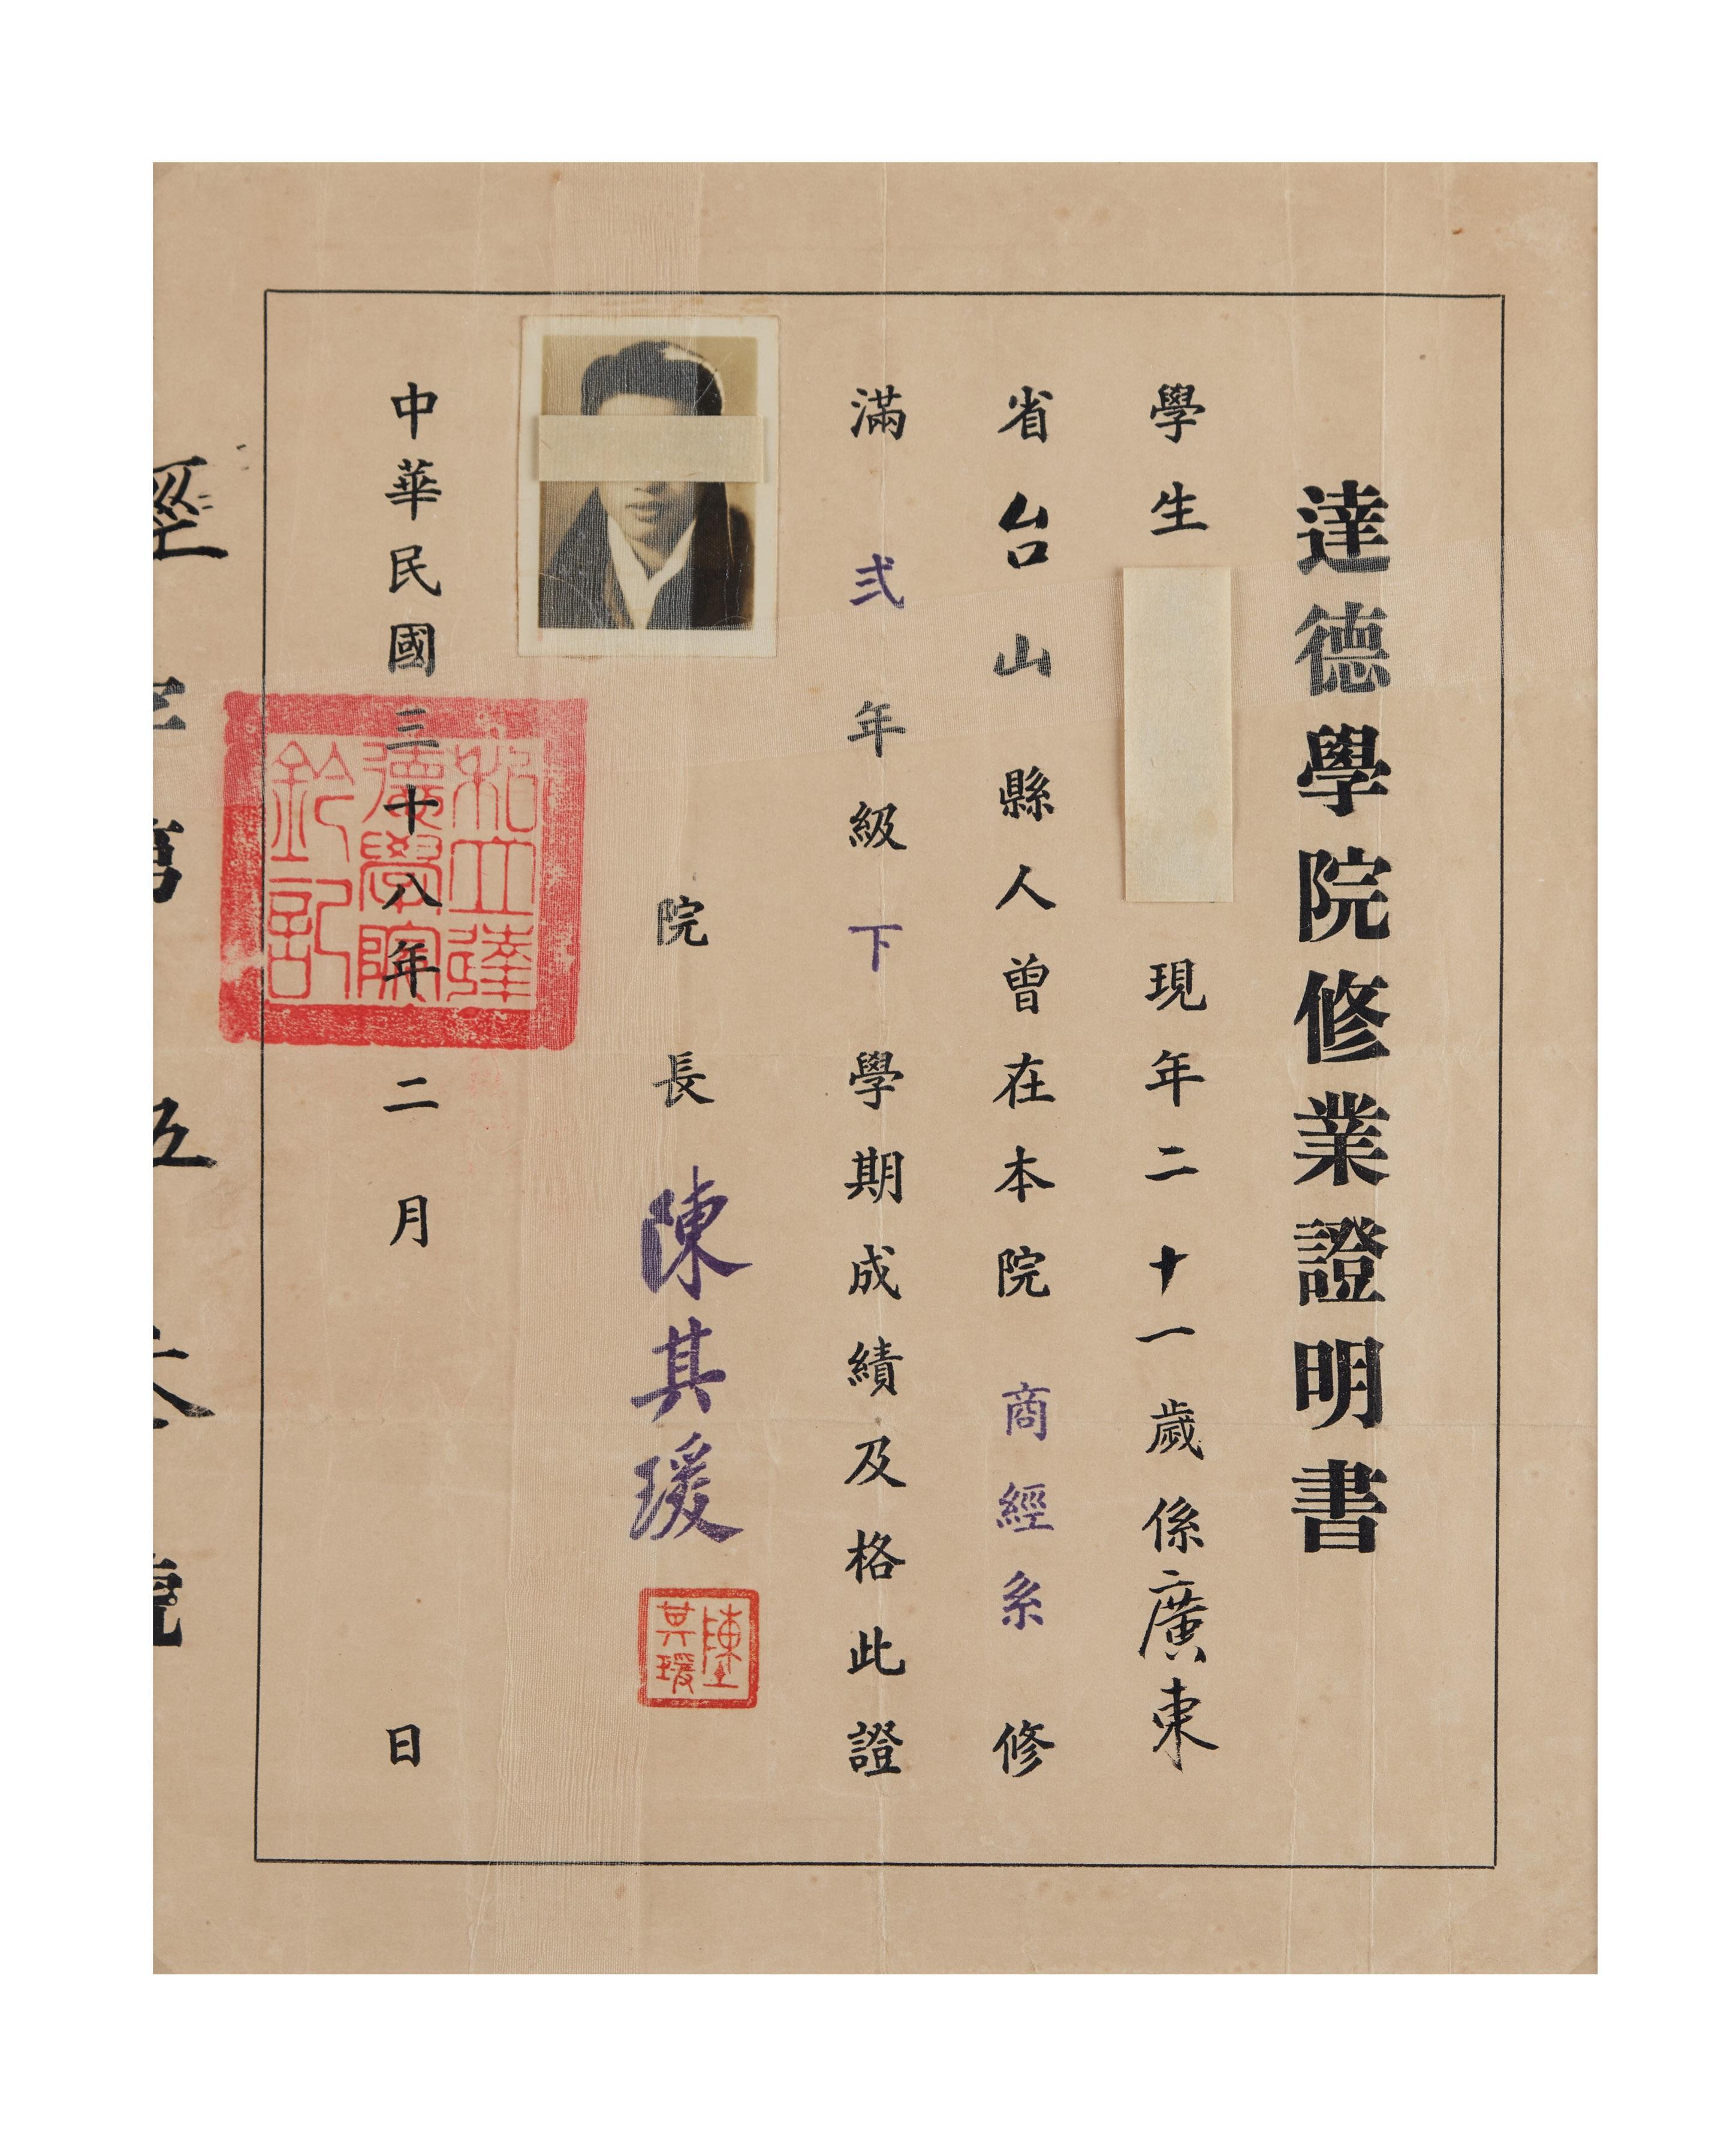 達德學院修業證明書
學生 現年二十一歲係廣東
省台山縣人曾在本院商經系修
滿弍年級下學期成績及格此證
院長 陳其瑗
陳其瑗
中華民國三十八年二月 日
私立達德學院鈐記